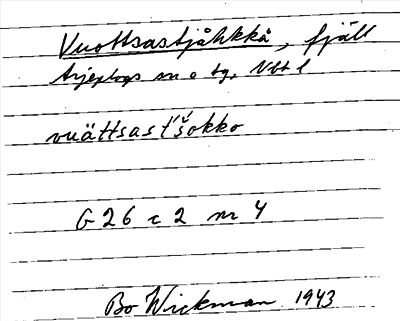 Vuottsastjåhkkå, fjäll
Arjeplogs sn o tg, Vbt l
vuättsast́š́okko
G 26 c 2 nr 4
Bo Wickman 1943